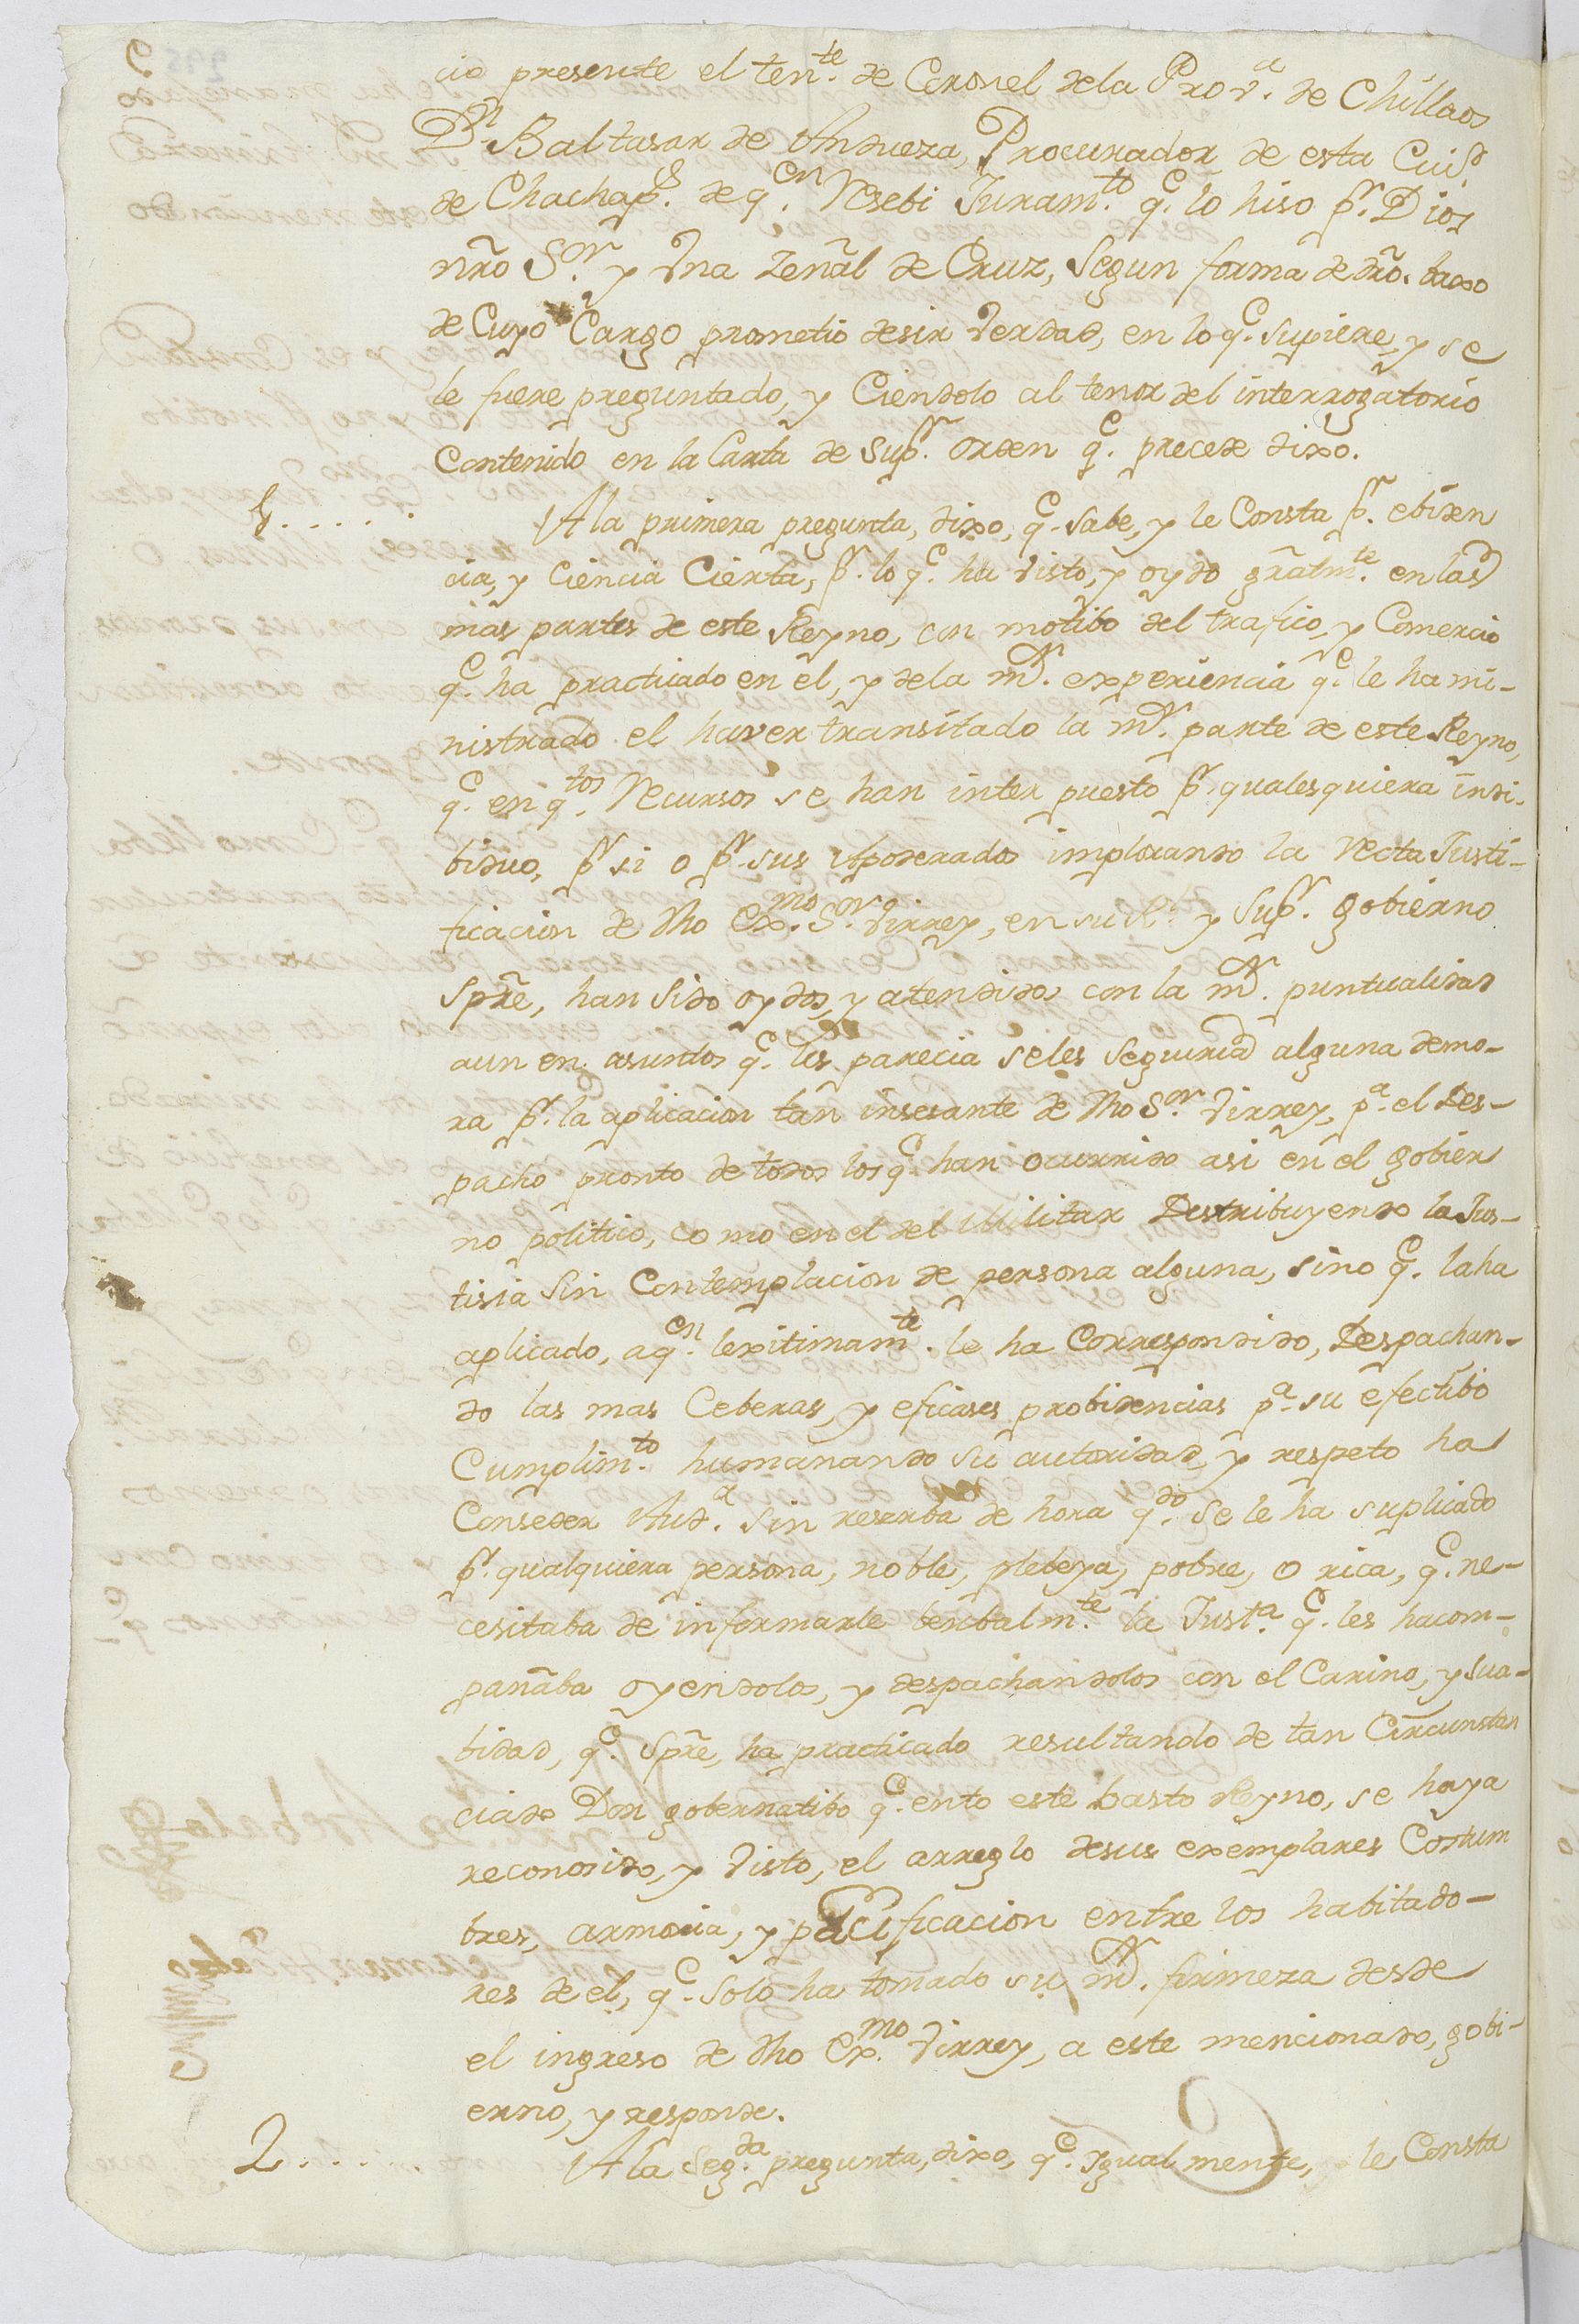 cio presente el tente. de Coronel dela Prova. de Chillaos
Dn. Baltasar de Andueza, Procurador de esta Ciud.
de Chachaps. de qen. Resebi Juramto. qe. lo hiso pr. Dios
nro Sor. y Vna Zenal de Cruz, Segun forma de dro. baxo
de Cuyo Cargo prometio desir Verdad, en lo qe. supiere, y se
le fuere preguntado, y Ciendolo al tenor del interrogatorio
Contenido en la Carta de Supr. orden qe. precede dixo.
1 . . . . . A la primera pregunta, dixo, qe. sabe, y le Consta pr. ebiden
cia, y Ciencia Cierta, pr. lo qe. ha Visto, y oydo gralmte. en las
mas partes de este Reyno, con motibo del trafico, y Comercio
qe. ha practicado en el, y dela mr. experiencia qe. le ha mi-
nistrado el haver transitado la mr. parte de este Reyno,
qe. en qtos. Recursos se han inter puesto pr. qualesquiera indi-
biduo, pr si o pr. sus Apoderados implorando la Recta Justi-
ficacion de dho Exmo. Sor. Virrey, en su Rl. y Supr. gobierno
Spre, han sido oydos, y atendidos con la mr. puntualidad
aun en asuntos qe. les parecia seles Seguiria alguna demo-
ra pr. la aplicacion tan insesante de dho Sor. Virrey, pa. el Des-
pacho pronto de todos los qe. han ocurrido asi en el gobier
no politico, como en el del Militar Distribuyendo la Jus-
tisia Sin Contemplacion de persona alguna, sino qe. la ha
aplicado, a qen. lexitimamte. le ha Correspondido, Despachan-
do las mas Ceberas, y eficases probidencias pa. su efectibo
Cumplimto. humanando su autoridad, y respeto ha
Conseder Auda. Sin reserba de hora qdo. se le ha suplicado
pr. qualquiera persona, noble, plebeya, pobre, o rica, qe. ne-
cesitaba de informarle berbalmte. la Justa. qe. les hacom-
pañaba oyendolos, y despachandolos con el Carino, y sua-
bidad, qe. Spre, ha practicado resultando de tan Circunstan
ciado Don gobernatibo qe. ento este basto Reyno, se haya
reconosido, y Visto, el arreglo desus exemplares Costum
bres, armonia, y pacificacion entre los habitado-
res de el, qe. solo ha tomado su mr. firmeza desde
el ingreso de dho Exmo. Virrey, a este mencionado, gobi-
erno, y responde.
2 . . . . . . A la Segda. pregunta, dixo, qe. Igual mente, le Consta